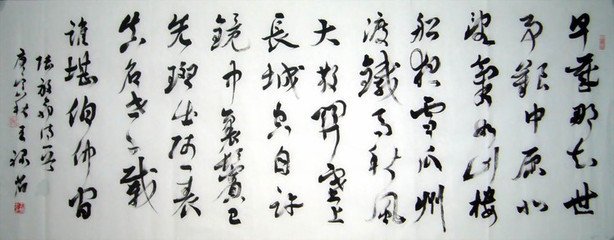 早歲那知世
事艱中原北
望氣如山樓
船夜雪瓜州
渡鐵馬秋風
大散關塞上
長城空自許
鏡中衰鬢已
先斑出師一表
真名世千載
誰堪伯仲間
陸放翁詩
庚寅秋